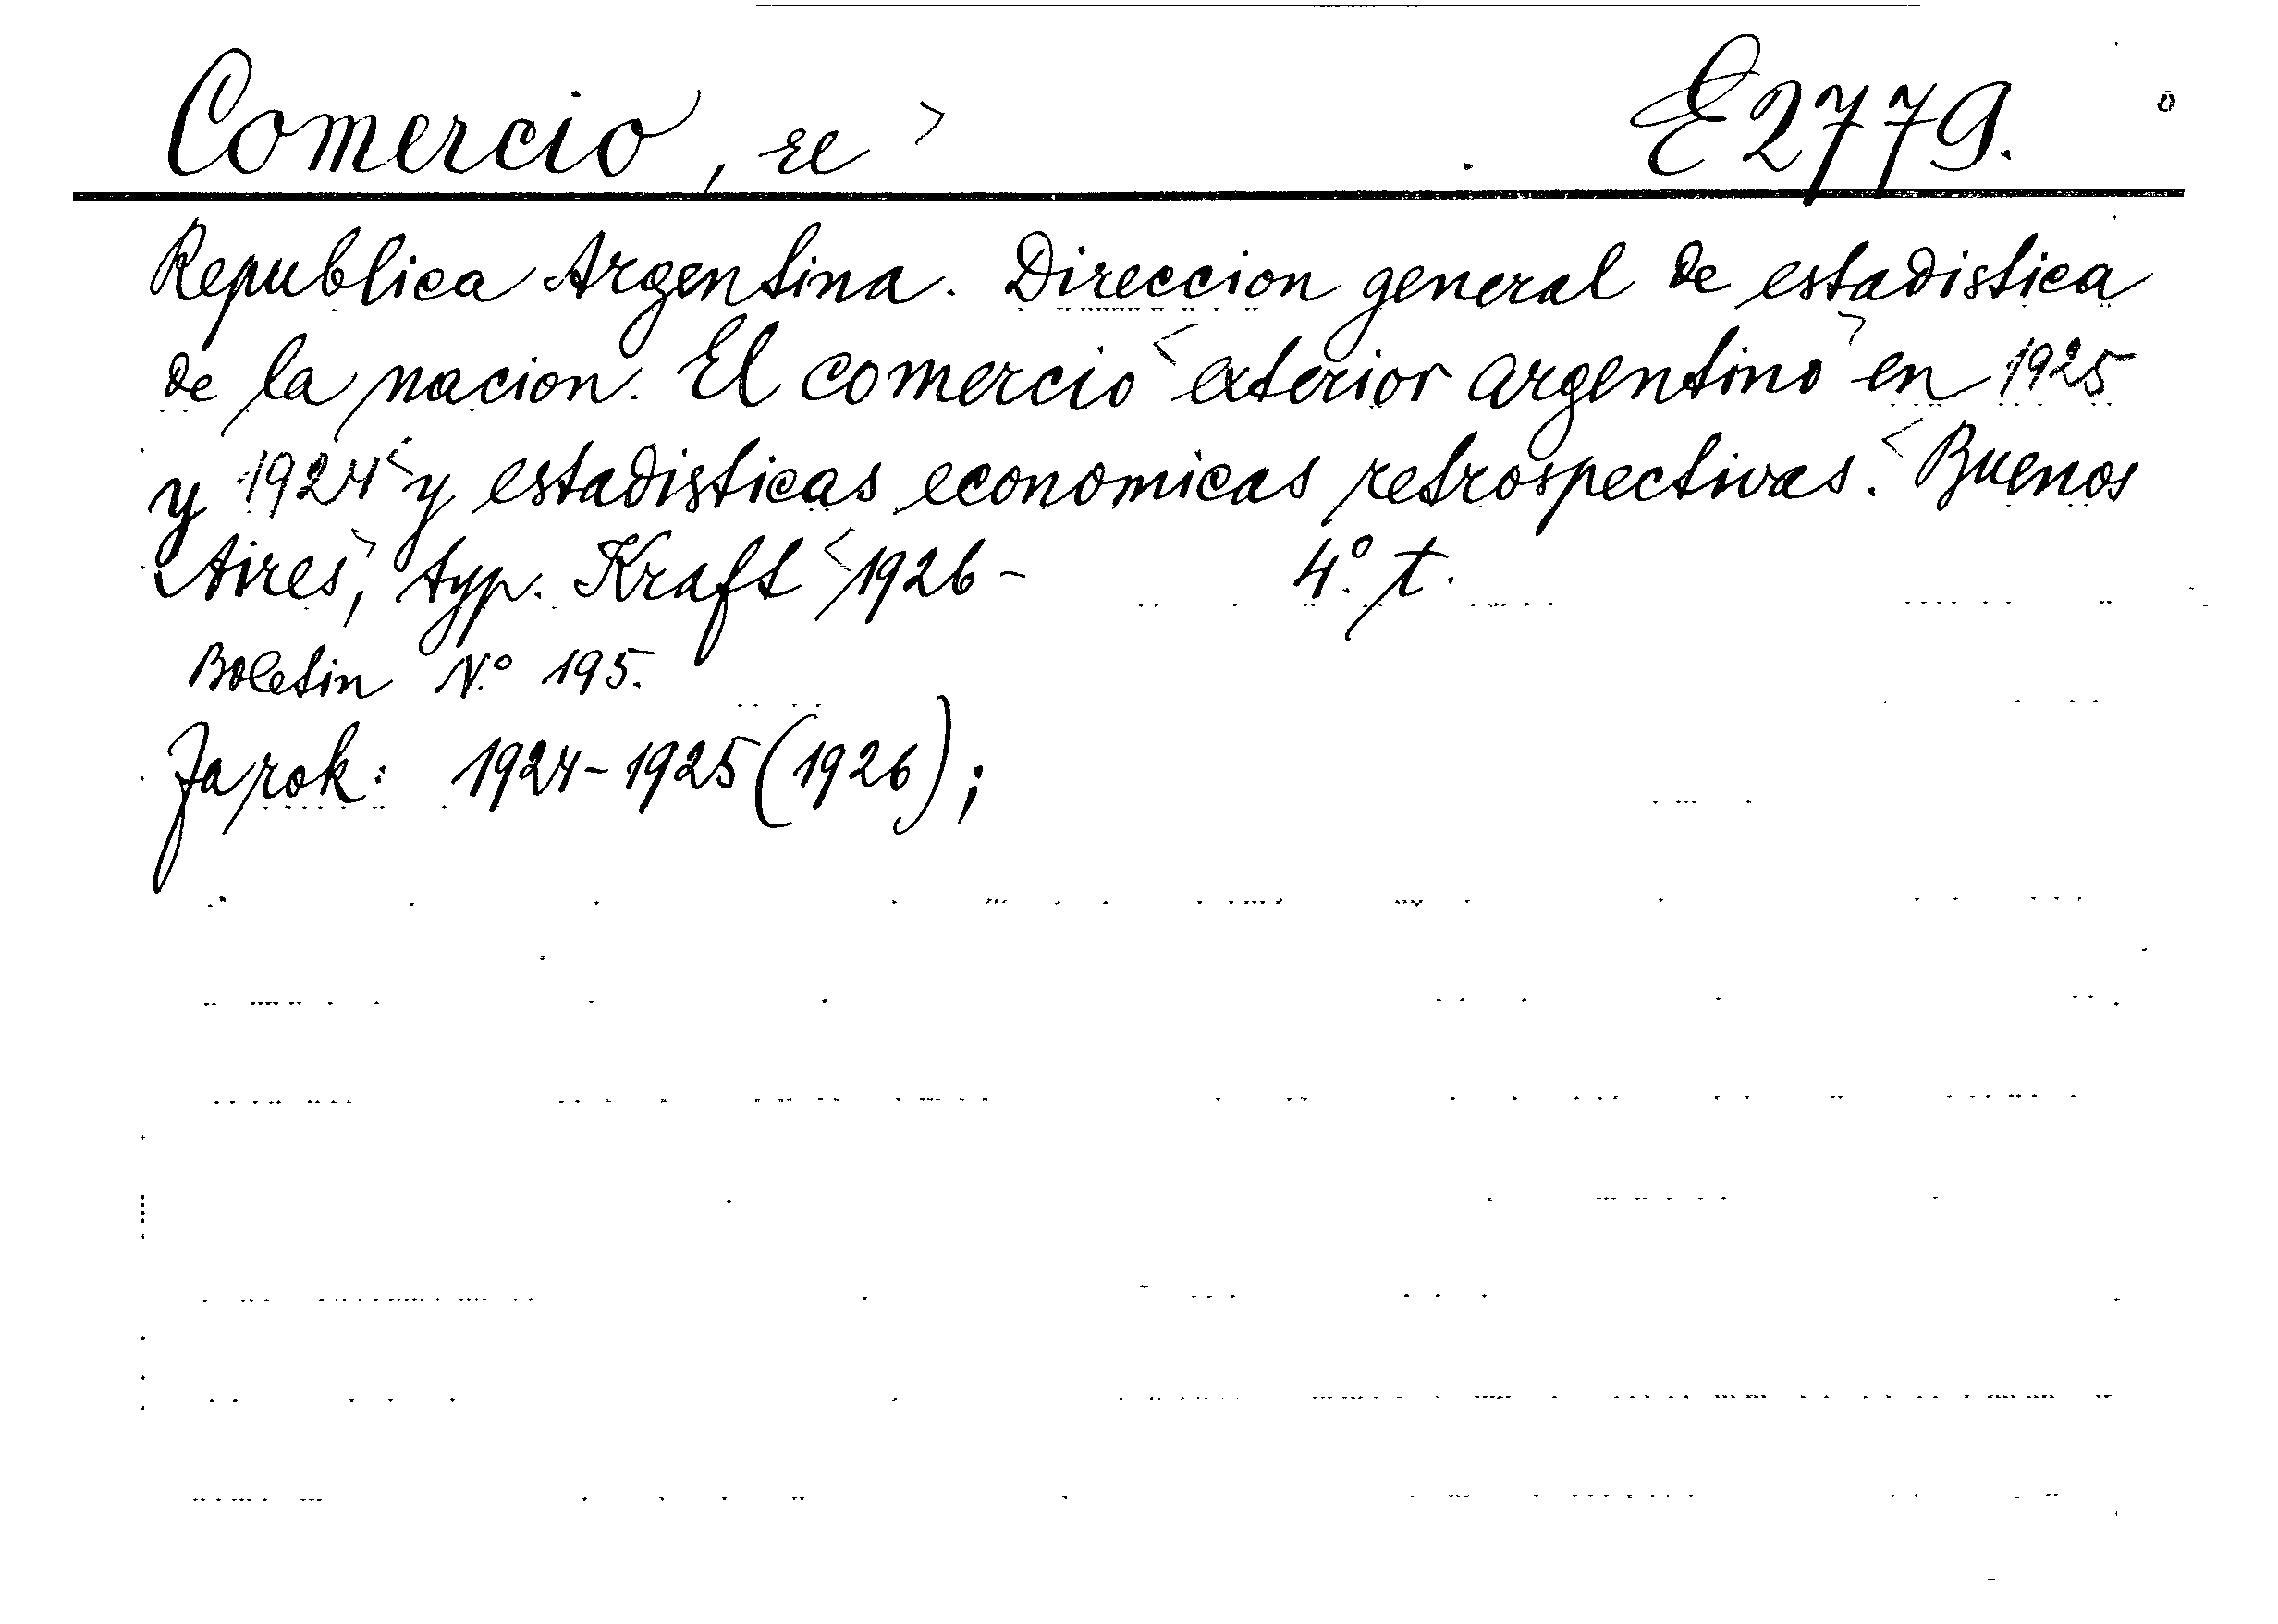 Comercio, El > E2779.
Republica Argentina. Direccion general de estadistica
de la nacion. El comercio < exterior argentino > en 1925
y 1924 < y estadisticas economicas retrospectivas. < Buenos
Aires, > typ. Kraft < 1926 - 4° t.
Boletin N.° 195.
Ja rok: 1924-1925 (1926);